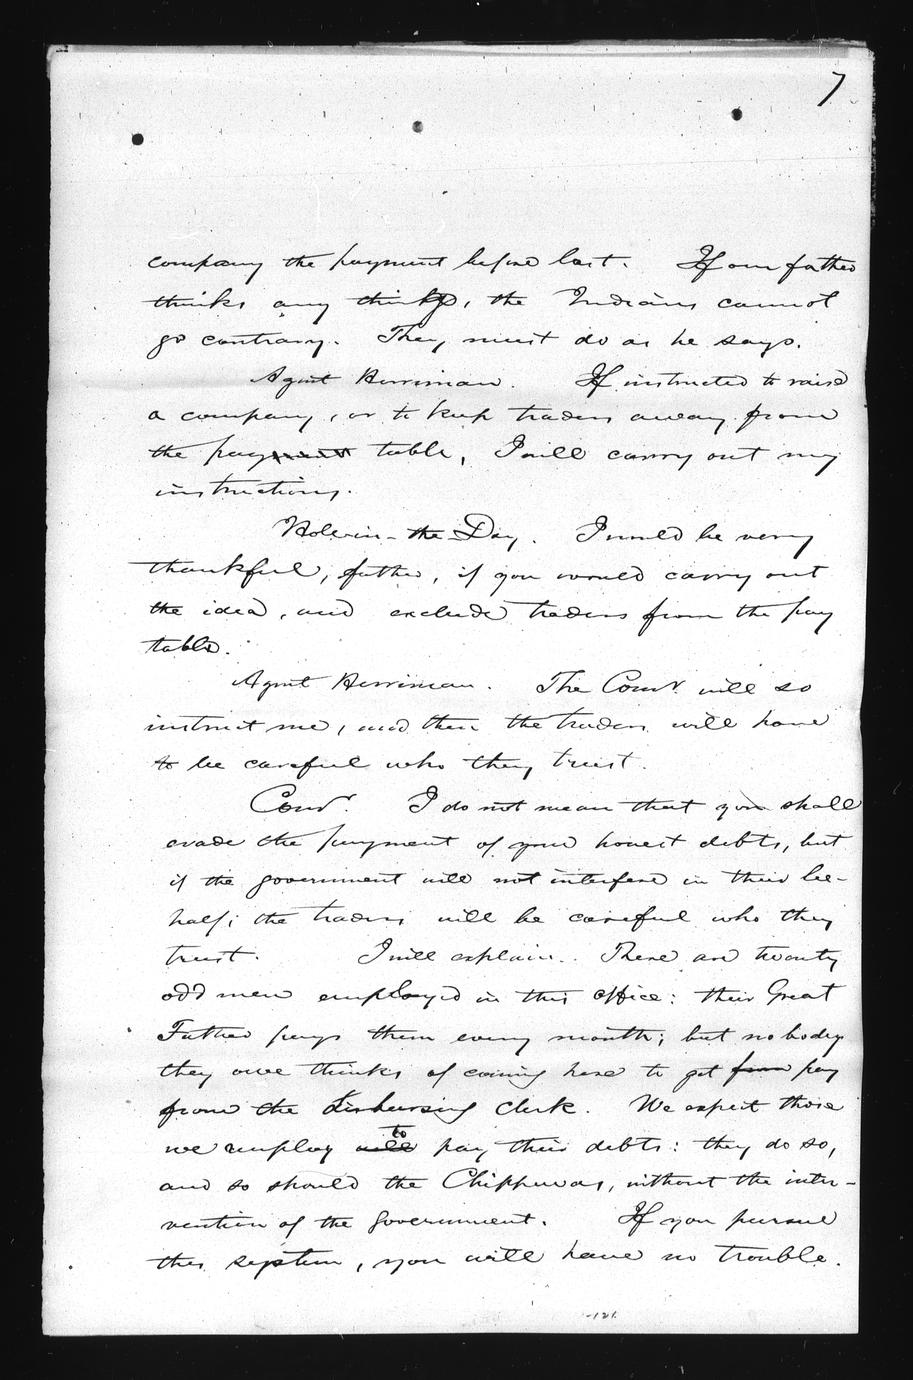 7
company the payment before last. If our father
thinks any thing, the Indians cannot
go contrary. They must do as he says.
Agent Herriman. If instructed to raise
a company, or to keep traders away from
the payment table, I will carry out my
instructions.
Hole-in-the-Day. I would be very
thankful, father, if you would carry out
the idea, and exclude traders from the pay
table.
Agent Herriman. The Comr. will so
instruct me, and then the traders will have
to be careful who they trust.
Comr. I do not mean that you shall
evade the payment of your honest debts, but
if the government will not interfere in their be-
half; the traders will be careful who they
trust. I will explain. There are twenty
odd men employed in this office: their Great
Father pays them every month; but nobody
they owe thinks of coming here to get from pay
from the disbursing clerk. We expect those
we employ will to pay their debts: they do so,
and so should the Chippewas, without the inter-
vention of the government. If you pursue
this system, you will have no trouble.